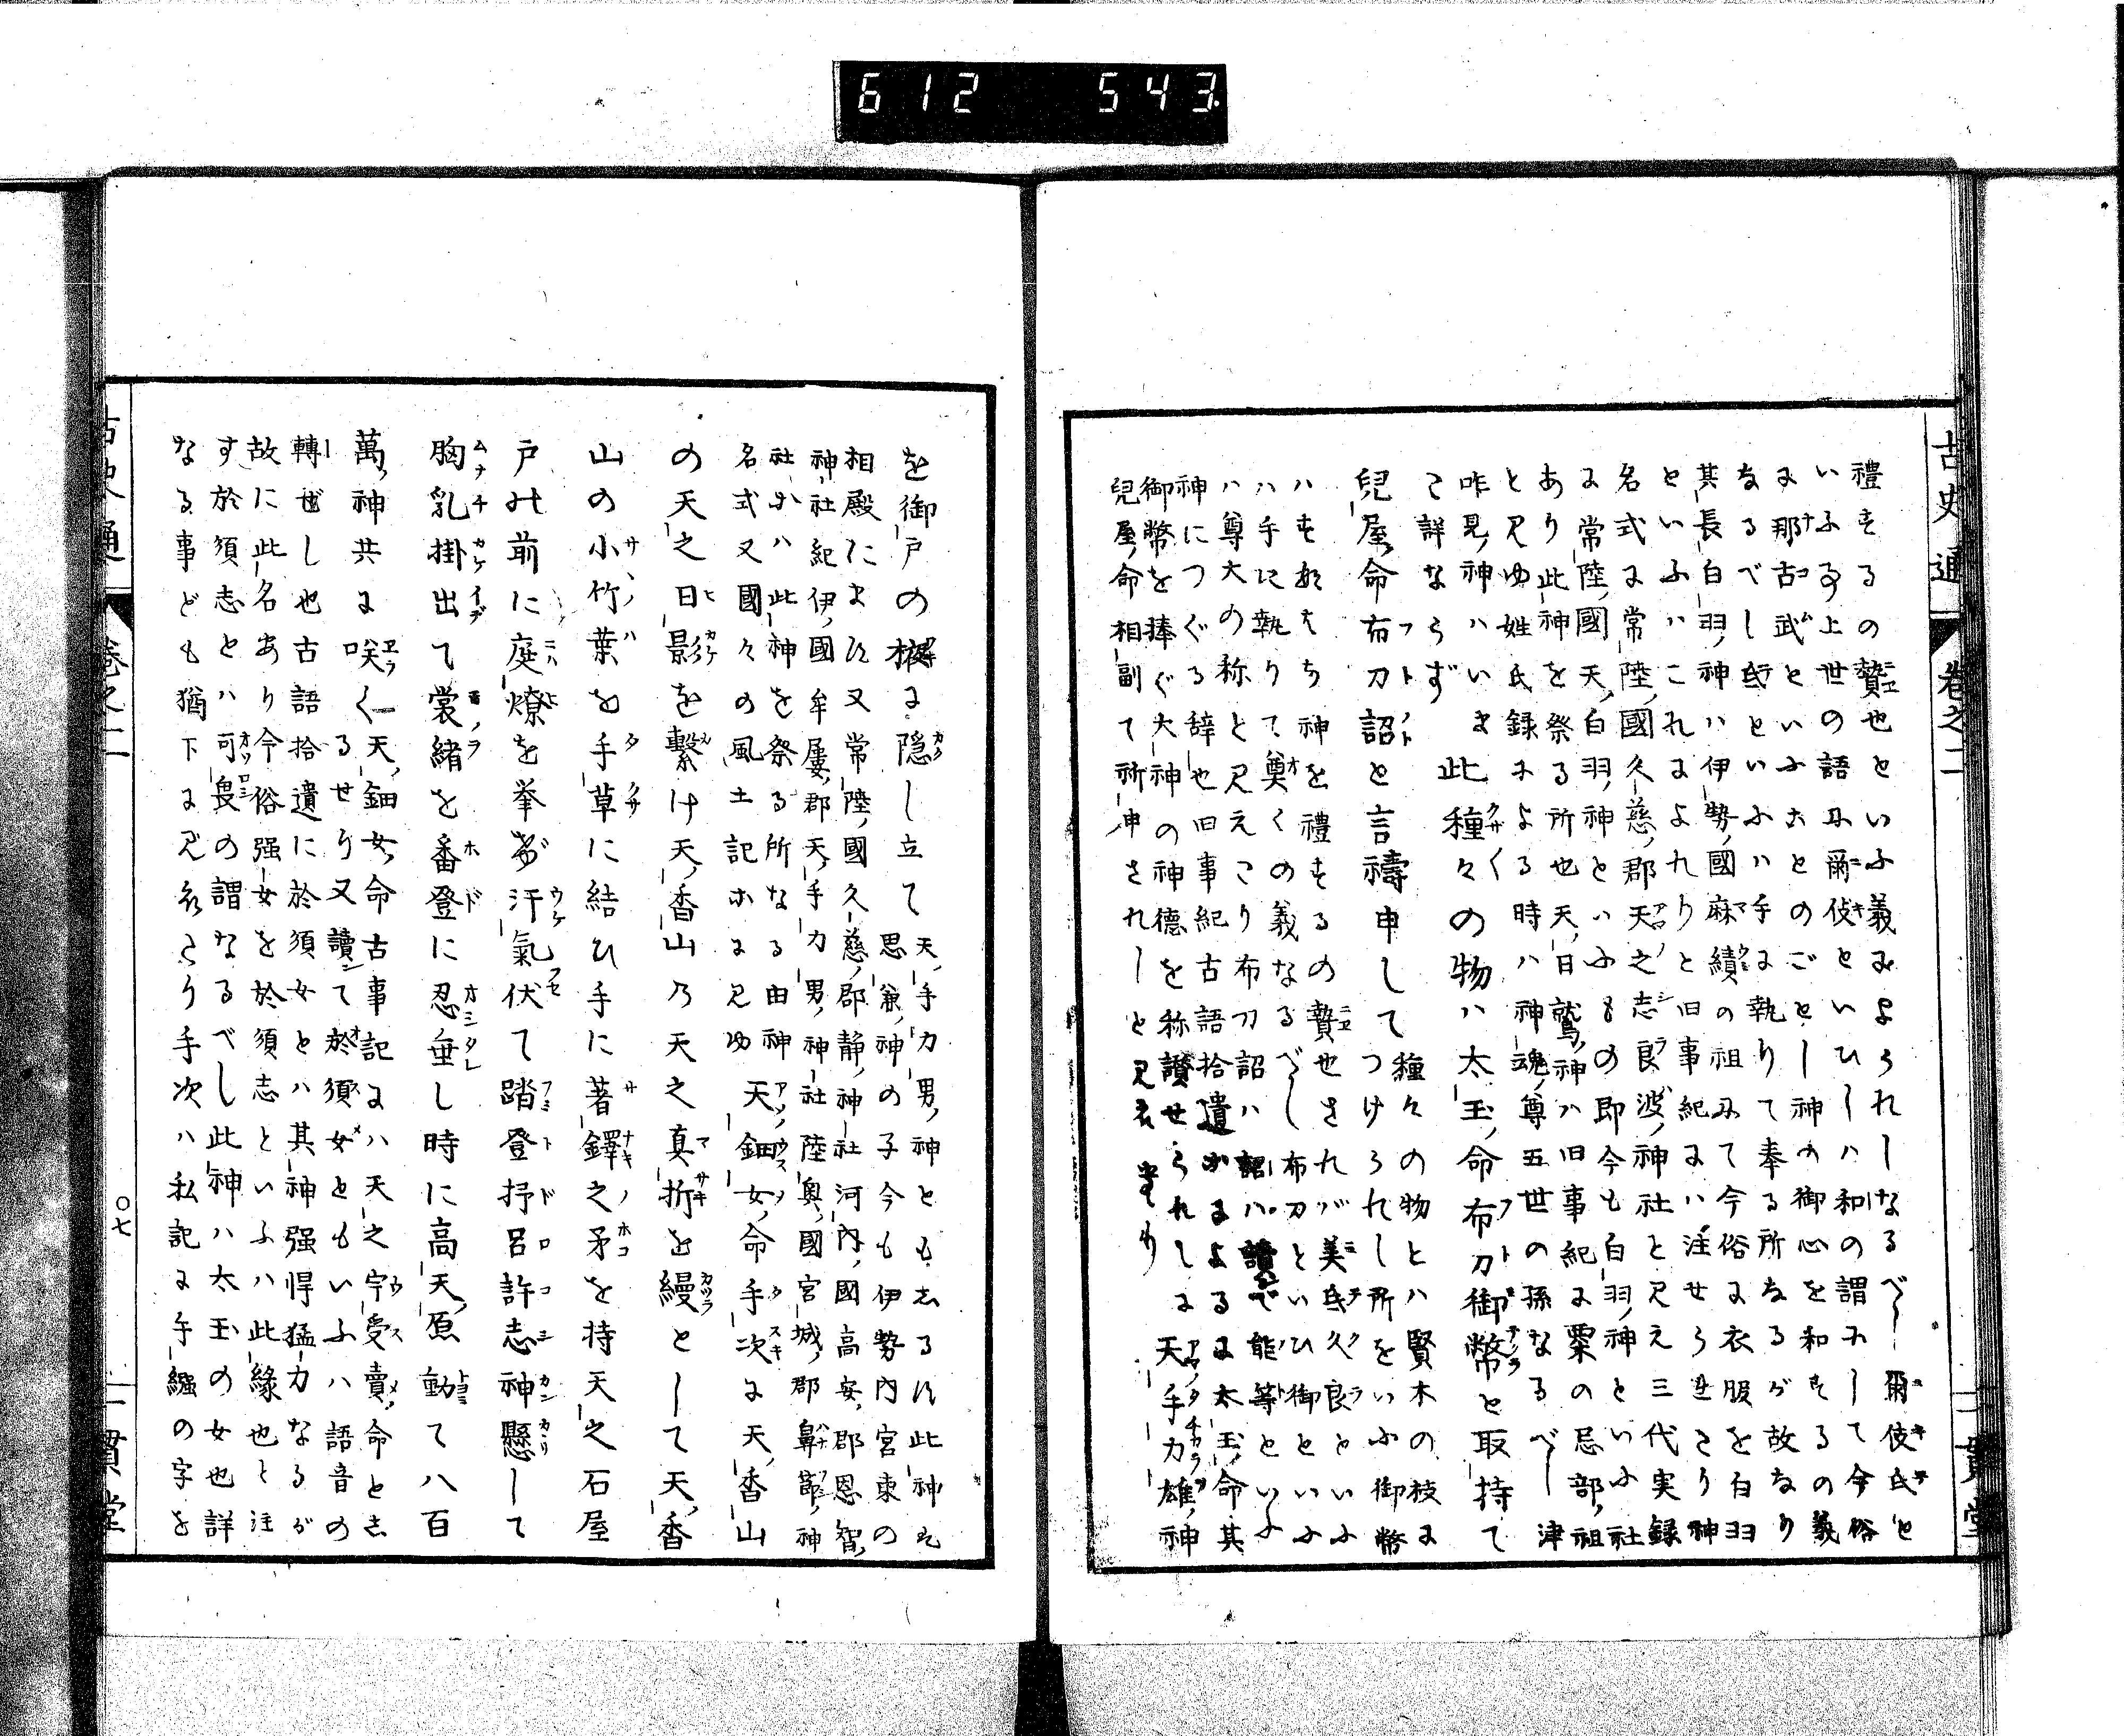 612 543
古史通 卷之二 一貫堂
禮するの贄也といふ義によられしなるべし 爾伎氐と
いふる上世の語に爾伎といひしハ和の謂にして今俗
に那古武といふことのごとし神の御心を和するの義
なるべし氐といふハ手に執りて奉る所なるが故なり
其長白羽神ハ伊勢國麻績の祖にて今俗に衣服を白羽
といふハこれによれりと旧事紀にハ注せられたり神
名式に常陸國久慈郡天之志良波神社と見え三代実録
に常陸國天白羽神といふもの即今も白羽神といふ社
あり此神を祭る所也天日鷲神ハ旧事紀に粟の忌部祖
と見ゆ姓氏録による時ハ神魂尊五世の孫なるべし津
咋見神ハいま
た詳ならず
此種々の物ハ太玉命布刀御幣と取持て
兒屋命布刀詔と言禱申して
種々の物とハ賢木の枝に
つけられし所をいふ御幣
ハすなはち神を禮するの贄也されバ美氐久良といふ
ハ手に執りて奠くの義なるべし布刀といひ御といふ
ハ尊大の称と見えたり布刀詔ハ詔ハ讀で能等といふ
神につぐる辞也旧事紀古語拾遺によるに太玉命其
御幣を捧ぐ大神の神德を称讃せられしに
兒屋命相副て祈申されしと見えたり
天手力雄神
を御戸の掖に隱し立て
天手力男神ともしるす此神は
思兼神の子今も伊勢內宮東の
相殿にます又常陸國久慈郡静神社河內國高安郡恩智
神社紀伊國牟屢郡天手力男神社陸奧國宮城郡鼻節神
社ホハ此神を祭る所なる由神
名式又國々の風土記ホに見ゆ
天鈿女命手次に天香山
の天之日影を繫け天香山乃天之真折を縵として天香
山の小竹葉を手草に結ひ手に著鐸之矛を持天之石屋
戸の前に庭燎を挙あげ汗氣伏て踏登抒呂許志神懸して
胸乳掛出て裳緒を番登に忍垂し時に高天原動て八百
萬神共に咲く
天鈿女命古事記にハ天之宇受賣命としるせり又讀て於須女ともいふハ語音の
轉ぜし也古語拾遺に於須女とハ其神强悍猛力なるが
故に此名あり今俗强女を於須志といふハ此緣也と注
す於須志とハ可畏の謂なるべし此神ハ太玉の女也詳
なる事ども猶下に見えたり手次ハ私記に手繦の字を
古史通 卷之二 〇七 一貫堂